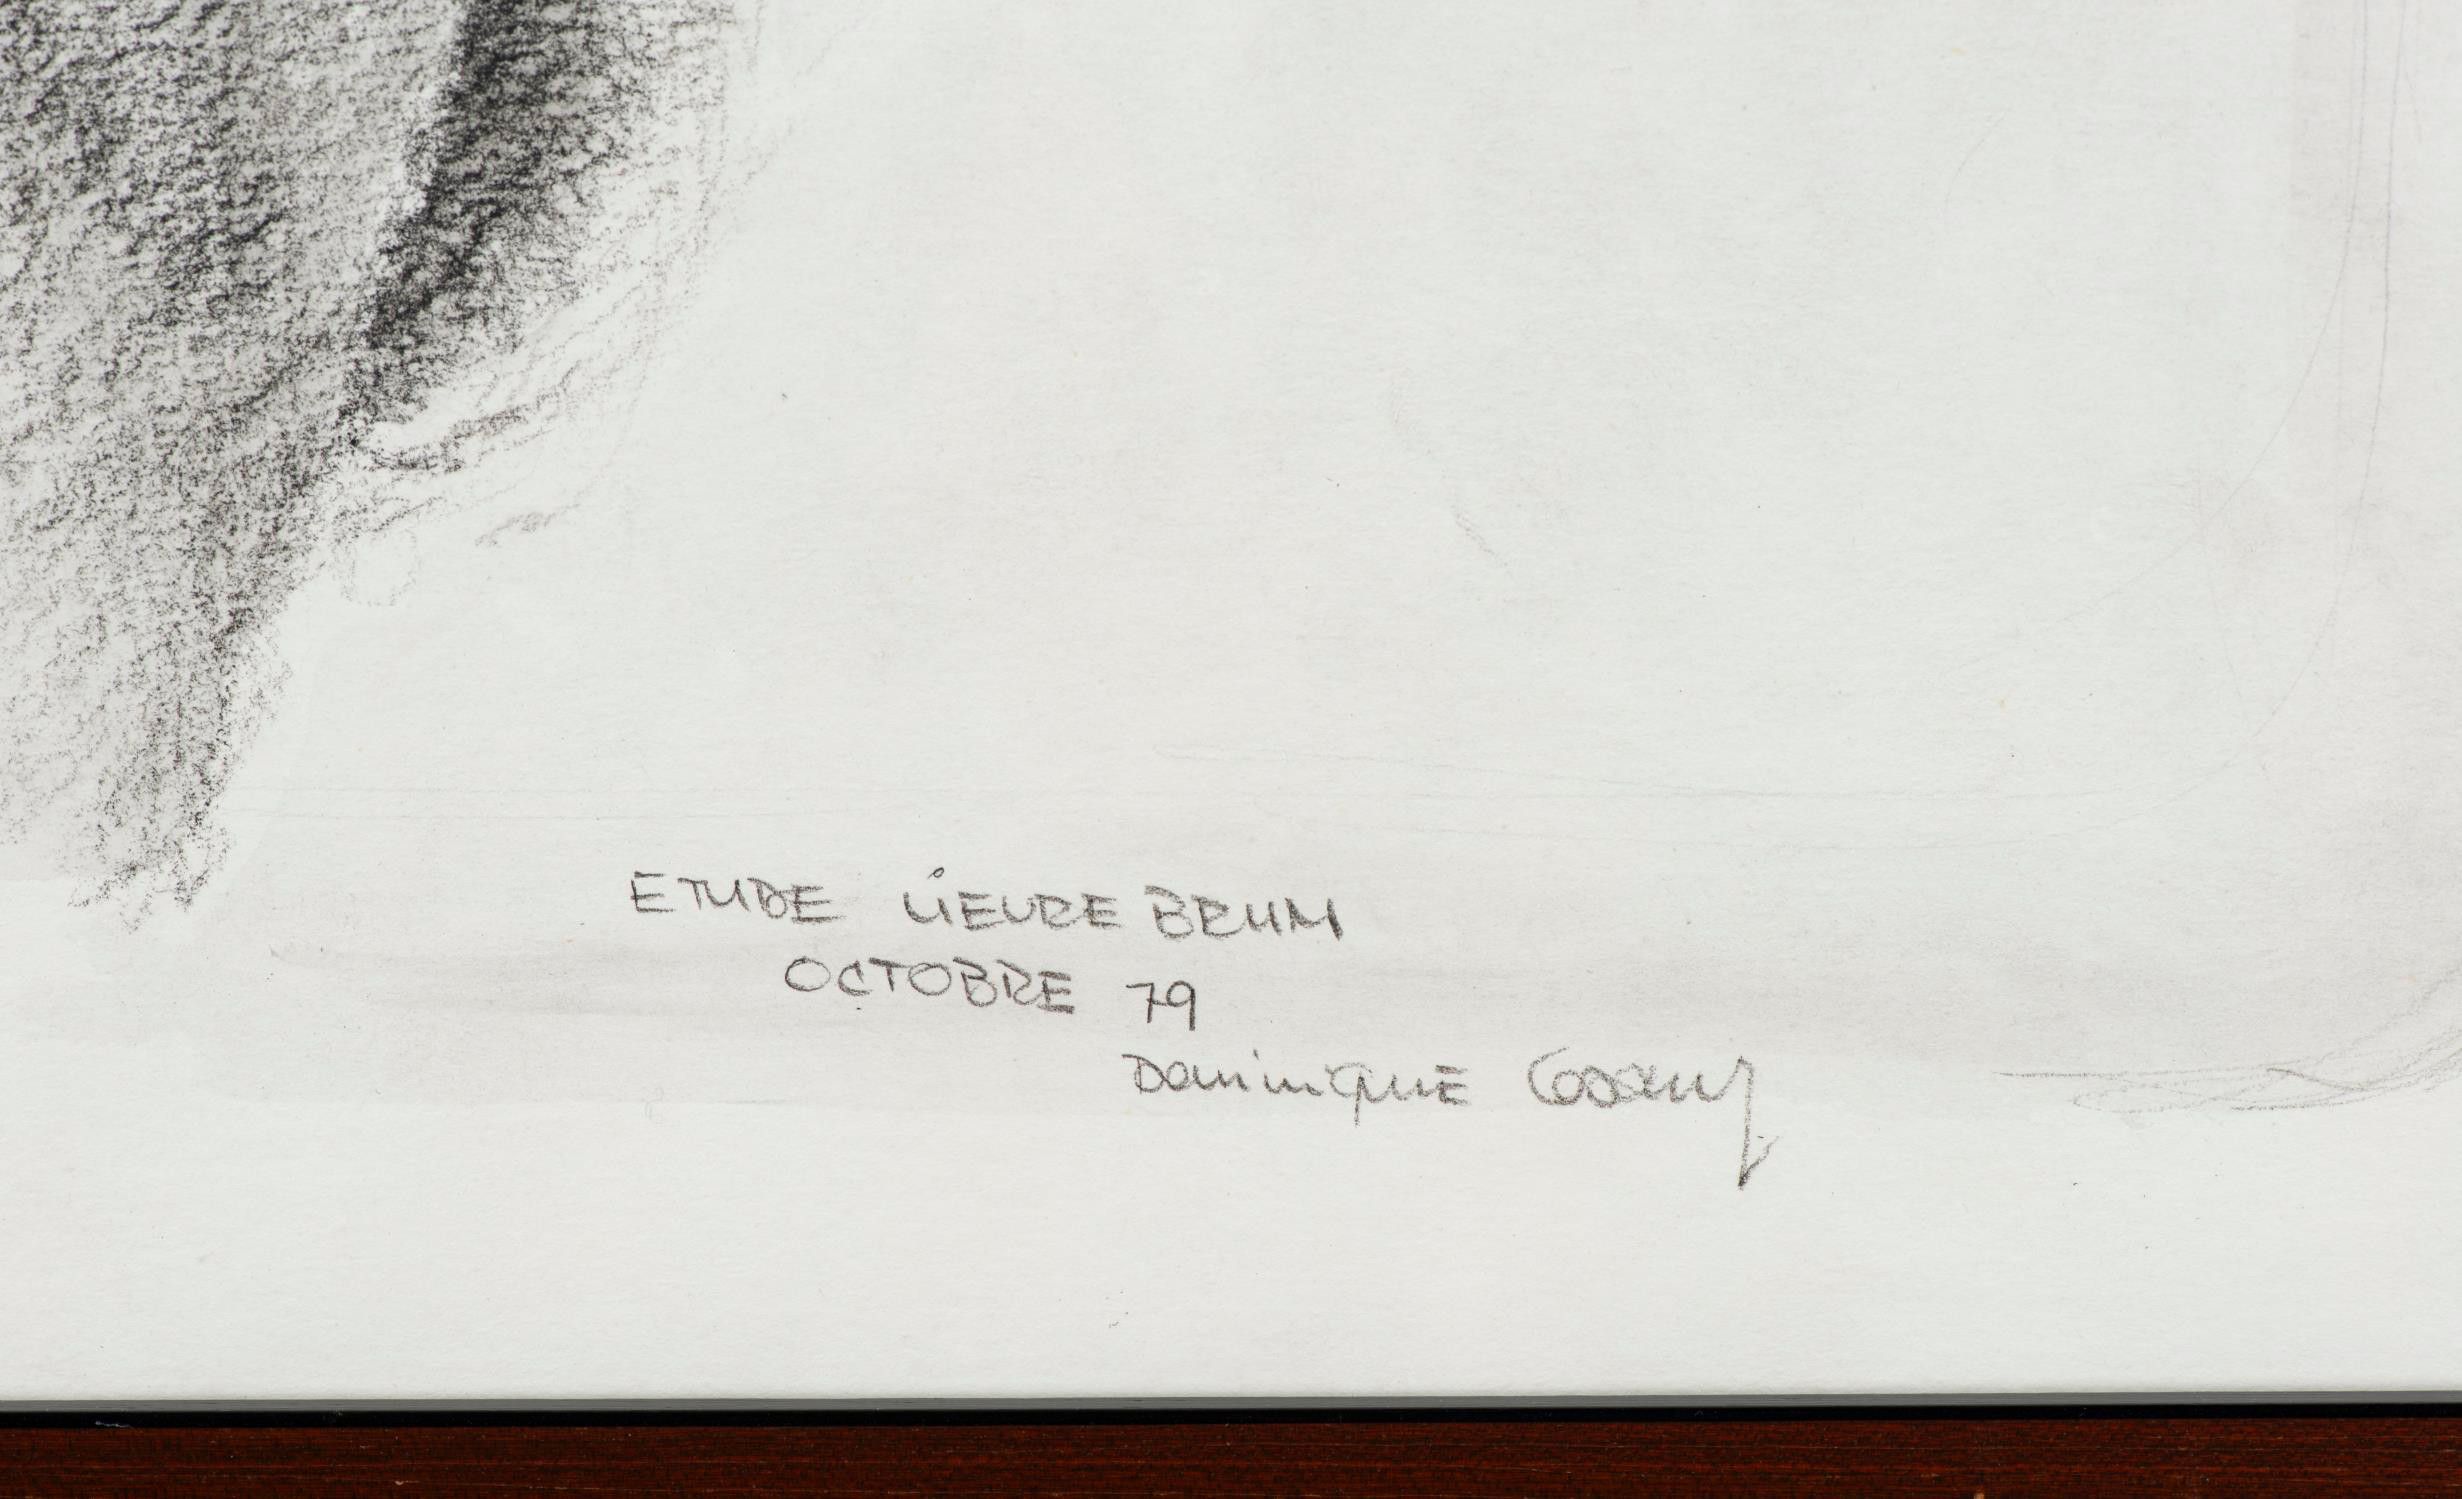 ETUDE LIEVRE BRUN
OCTOBRE 79
Dominique Cosany